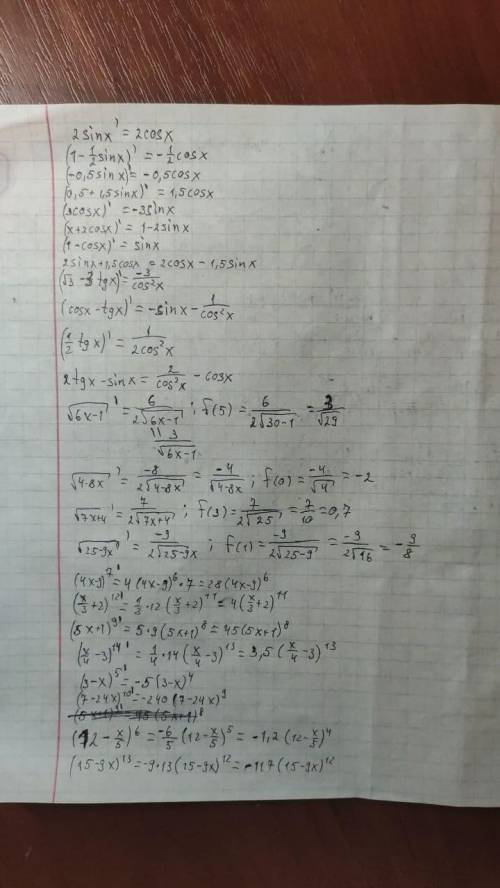 2sinx' = 2cosx
(1 - 1/2 sinx)' = -1/2 cosx
(-0,5sinx)' = -0,5cosx
(0,5+1,5sinx)' = 1,5cosx
(3cosx)' = -3sinx
(x+2cosx)' = 1-2sinx
(1-cosx)' = sinx
2sinx+1,5cosx = 2cosx - 1,5sinx
(√3 - 3tgx)' = -3/cos²x
(cosx - tgx)' = -sinx - 1/cos²x
(1/2 tgx)' = 1/2cos²x
2tgx - sinx = 2/cos²x - cosx
√6x-1' = 6/2√6x-1 ; f(5) = 6/2√30-1 = 3/√29
" 3/√6x-1
√4-8x' = -8/2√4-8x = -4/√4-8x ; f(0) = -4/√4 = -2
√7x+4' = 7/2√7x+4 ; f(3) = 7/2√25 = 7/10 = 0,7
√25-9x' = -9/2√25-9x ; f(1) = -9/2√25-9 = -9/2√16 = -9/8
(4x-9)⁷' = 4(4x-9)⁶·7 = 28(4x-9)⁶
(x/3+2)¹²' = 1/3·12(x/3+2)¹¹ = 4(x/3+2)¹¹
(5x+1)⁹' = 5·9(5x+1)⁸ = 45(5x+1)⁸
(x/4-3)¹⁴' = 1/4·14(x/4-3)¹³ = 3,5(x/4-3)¹³
(3-x)⁵' = -5(3-x)⁴
(7-24x)¹⁰' = -240(7-24x)⁹
(12 - x/5)⁶ = -6/5(12-x/5)⁵ = -1,2(12-x/5)⁴
(15-9x)¹³ = -9·13(15-9x)¹² = -117(15-9x)¹²